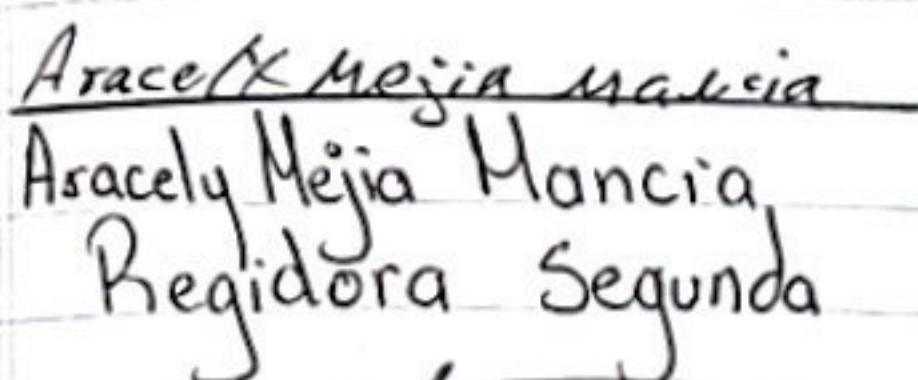 Aracely Mejia Mancia
Aracely Mejia Mancia,
Regidora Segunda